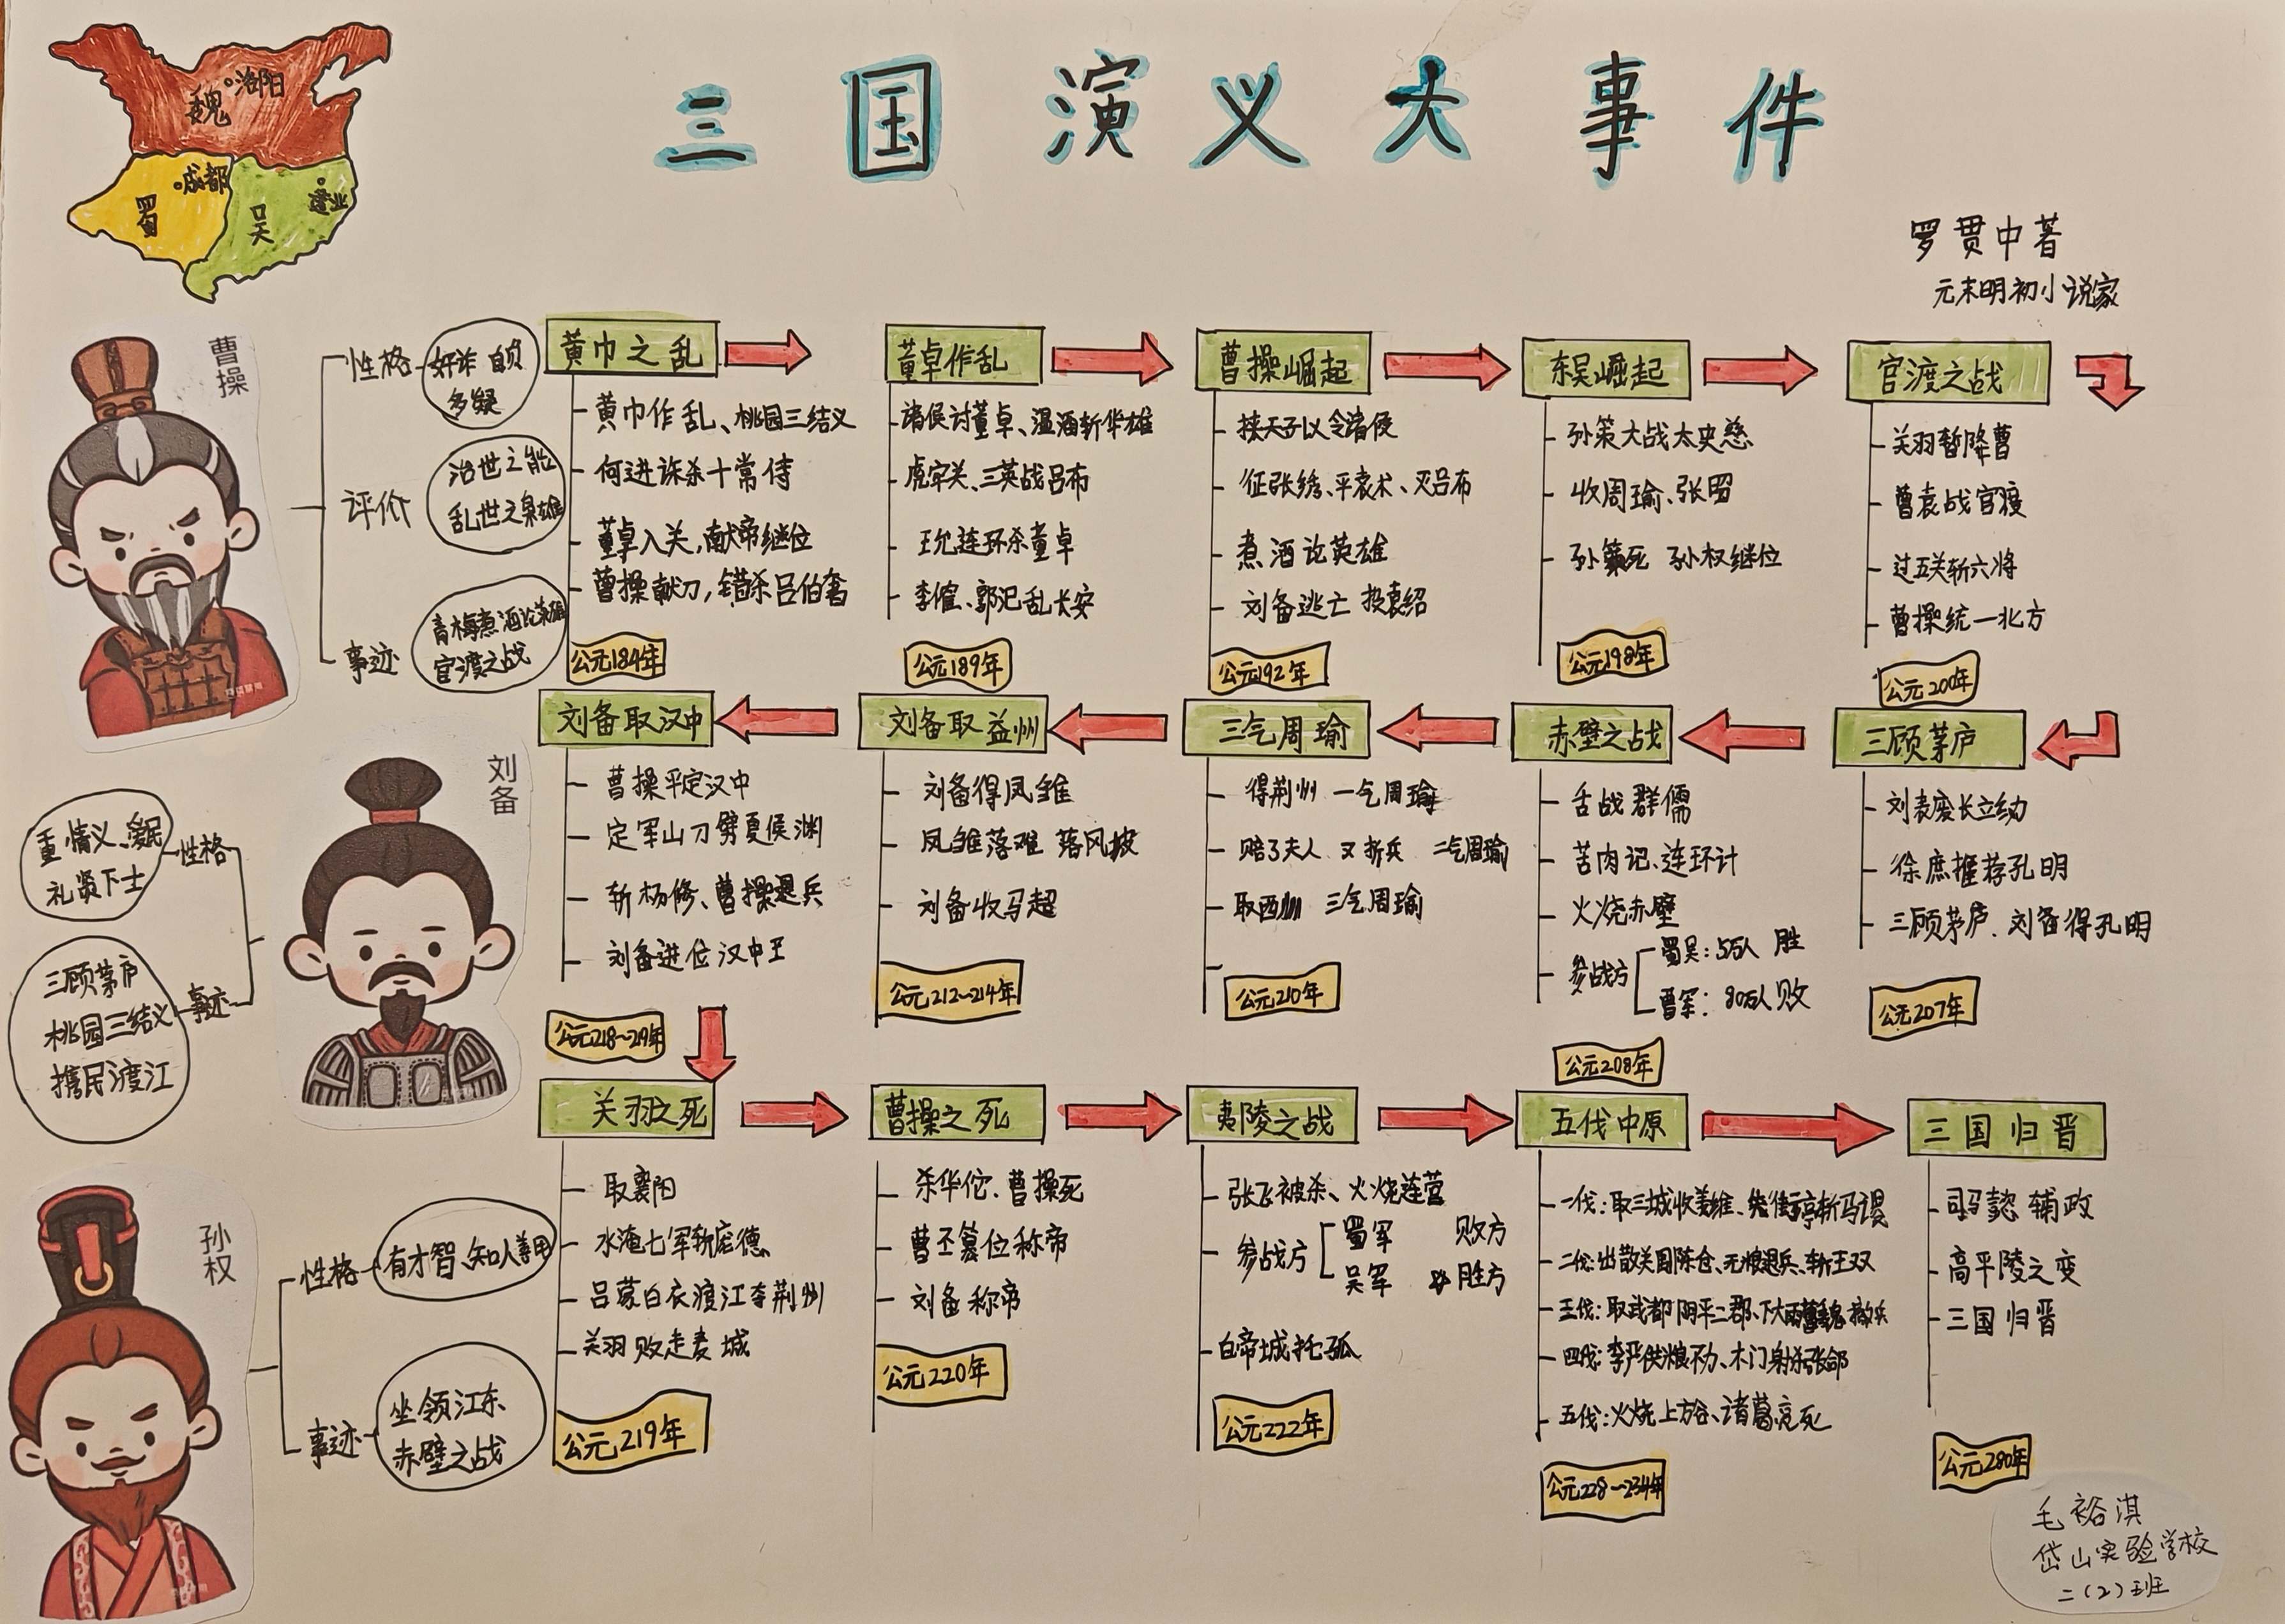 三国演义大事件
罗贯中著
元末明初小说家
魏
洛阳
蜀
成都
吴
建业
曹操
性格
奸诈 自负
多疑
评价
治世之能
乱世之枭雄
事迹
青梅煮酒论英雄
官渡之战
黄巾之乱
黄巾作乱、桃园三结义
何进诛杀十常侍
董卓入关,献帝继位
曹操献刀,错杀吕伯奢
公元184年
董卓作乱
诸侯讨董卓、温酒斩华雄
虎牢关、三英战吕布
王允连环杀董卓
李傕、郭汜乱长安
公元189年
曹操崛起
挟天子以令诸侯
征张绣、平袁术、灭吕布
煮酒论英雄
刘备逃亡 投袁绍
公元192年
东吴崛起
孙策大战太史慈
收周瑜、张昭
孙策死 孙权继位
公元198年
官渡之战
关羽暂降曹
曹袁战官渡
过五关斩六将
曹操统一北方
公元200年
三顾茅庐
刘表废长立幼
徐庶推荐孔明
三顾茅庐、刘备得孔明
公元207年
赤壁之战
舌战群儒
苦肉记、连环计
火烧赤壁
参战方
蜀吴:5万人 胜
曹军:80万人 败
公元208年
三气周瑜
得荆州 一气周瑜
赔了夫人 又折兵 二气周瑜
取西川 三气周瑜
公元210年
刘备取益州
刘备得凤雏
凤雏落难 落凤坡
刘备收马超
公元212~214年
刘备取汉中
曹操平定汉中
定军山刀劈夏侯渊
斩杨修、曹操退兵
刘备进位汉中王
公元218~219年
刘备
性格
重情义、爱民
礼贤下士
事迹
三顾茅庐
桃园三结义
携民渡江
关羽之死
取襄阳
水淹七军斩庞德
吕蒙白衣渡江夺荆州
关羽败走麦城
公元219年
曹操之死
杀华佗、曹操死
曹丕篡位称帝
刘备称帝
公元220年
夷陵之战
张飞被杀、火烧连营
参战方
蜀军 败方
吴军 胜方
白帝城托孤
公元222年
五伐中原
一伐:取三城收姜维、失街亭斩马谡
二伐:出散关围陈仓、无粮退兵、斩王双
三伐:取武都阴平二郡、下大雨曹魏撤兵
四伐:李严供粮不力、木门射杀张郃
五伐:火烧上方谷、诸葛亮死
公元228~234年
三国归晋
司马懿辅政
高平陵之变
三国归晋
公元280年
孙权
性格
有才智、知人善用
事迹
坐领江东
赤壁之战
毛裕淇
岱山实验学校
二(2)班